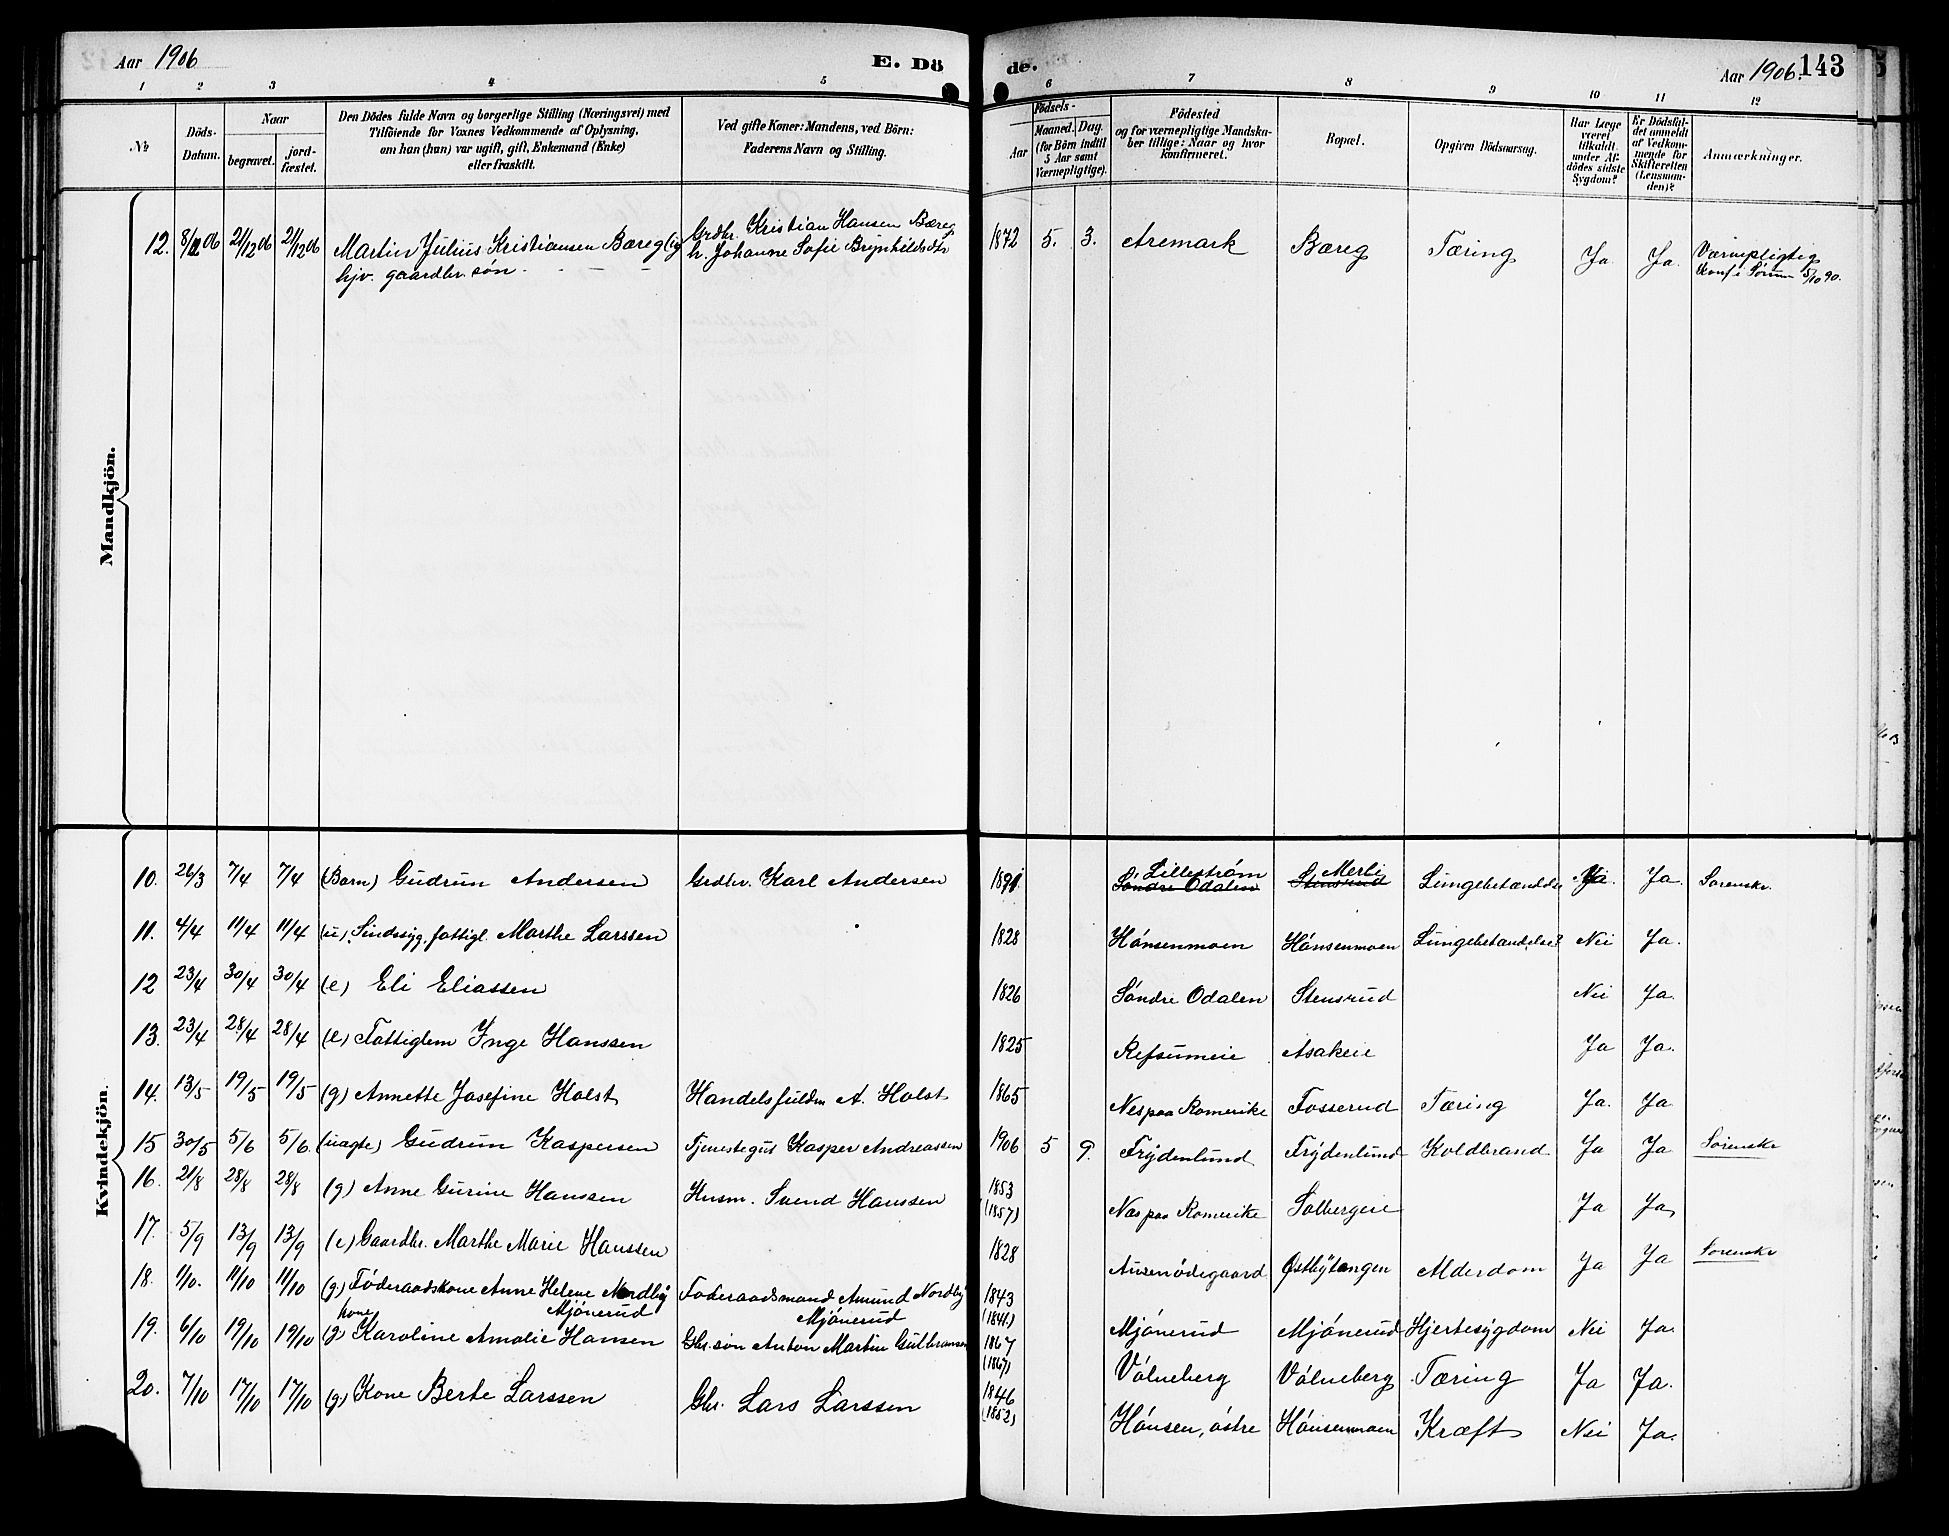 Aar 1906 E. Dö
de. Aar 1906. 143
1 2 3 4 5 6 7 8 9 10 11 12
№
Döds-
Datum.
Naar
begravet.
jord-
fæstet.
Den Dödes fulde Navn og borgerlige Stilling (Næringsvei) med
Tilföiende for Voxnes Vedkommende af Oplysning,
om han (hun) var ugift, gift, Enkemand (Enke)
eller fraskilt.
Ved gifte Koner: Mandens, ved Börn:
Faderens Navn og Stilling.
Födsels-
Aar
Maaned. Dag.
(for Börn indtil
5 Aar samt
Værnepligtige).
Födested
og for værnepligtige Mandska-
ber tillige: Naar og hvor
konfirmeret.
Bopæl.
Opgiven Dödsaarsag.
Har Læge
været
tilkaldt
under Af-
dödes sidste
Sygdom?
Er Dödsfal-
det anmeldt
af Vedkom-
mende for
Skifteretten
(Lensman-
den)?
Anmærkninger.
Mandkjön.
12. 8/12 06 21/12 06 21/12 06 Martin Julius Kristiansen Bæreg (ug) Grdbr. Kristian Hansen Bæreg 1872 5. 3. Aremark Bæreg Tæring Ja Ja. Værnepligtig
hjv. gaardbr. søn. h. Johanne Sofie Brynhildsdtr Konf i Sørum 5/10 90.
Kvindekjön.
10. 26/3 7/4 7/4 (Barn) Gudrun Andersen Grdbr. Karl Andersen 1891 Lillestrøm Merli Lungebetændelse Ja. Ja. Sorenskr.
Søndre Odalen Stensrud
11. 4/4 11/4 11/4 (u) Sindssyg, fattigl. Marthe Larssen 1828 Hønsenmoen Hønsenmoen Lungebetændelse? Nei Ja.
12 23/4 30/4 30/4 (e) Eli Eliassen 1826 Søndre Odalen Stensrud Nei Ja.
13. 23/4 28/4 28/4 (e) Fattiglem Inge Hanssen 1825 Refsumeie Asakeie Ja Ja.
14. 13/5 19/5 19/5 (g) Annette Josefine Holst Handelsfuldm A. Holst 1865 Nes paa Romerike Fosserud Tæring Ja. Ja
15 30/5 5/6 5/6. (uægte) Gudrun Kaspersen Tjenestegut Kasper Andreassen 1906 5 9. Frydenlund Frydenlund Koldbrand Ja Ja Sorenskr
16. 21/8 28/8 28/8 (g) Anne Gurine Hanssen Husm. Svend Hanssen 1853 (1857) Næs paa Romerike Solbergeie Ja Ja
17. 5/9 13/9 13/9 (e) Gaardbr. Marthe Marie Hanssen 1828 Ausenødegaard Østbytangen Alderdom Ja Ja Sorenskr
18. 1/10. 11/10 11/10 (g.) Føderaadskone Anne Helene Nordby Foderaadsmand Amund Nordby 1843 (1841) Mjønerud Mjønerud Hjertesygdom Nei Ja.
Mjønerud Mjønerud
19. 6/10 19/10 19/10 (g) kone Karoline Amalie Hansen Gbr. søn Anton Martin Gulbransen 1867 (1867) Vølneberg Vølneberg Tæring Ja Ja.
20. 7/10 17/10 17/10 (g) Kone Berte Larssen Gbr. Lars Larssen 1846 (1852) Hønsen, østre Hønsenmoen Kræft Nei Ja.